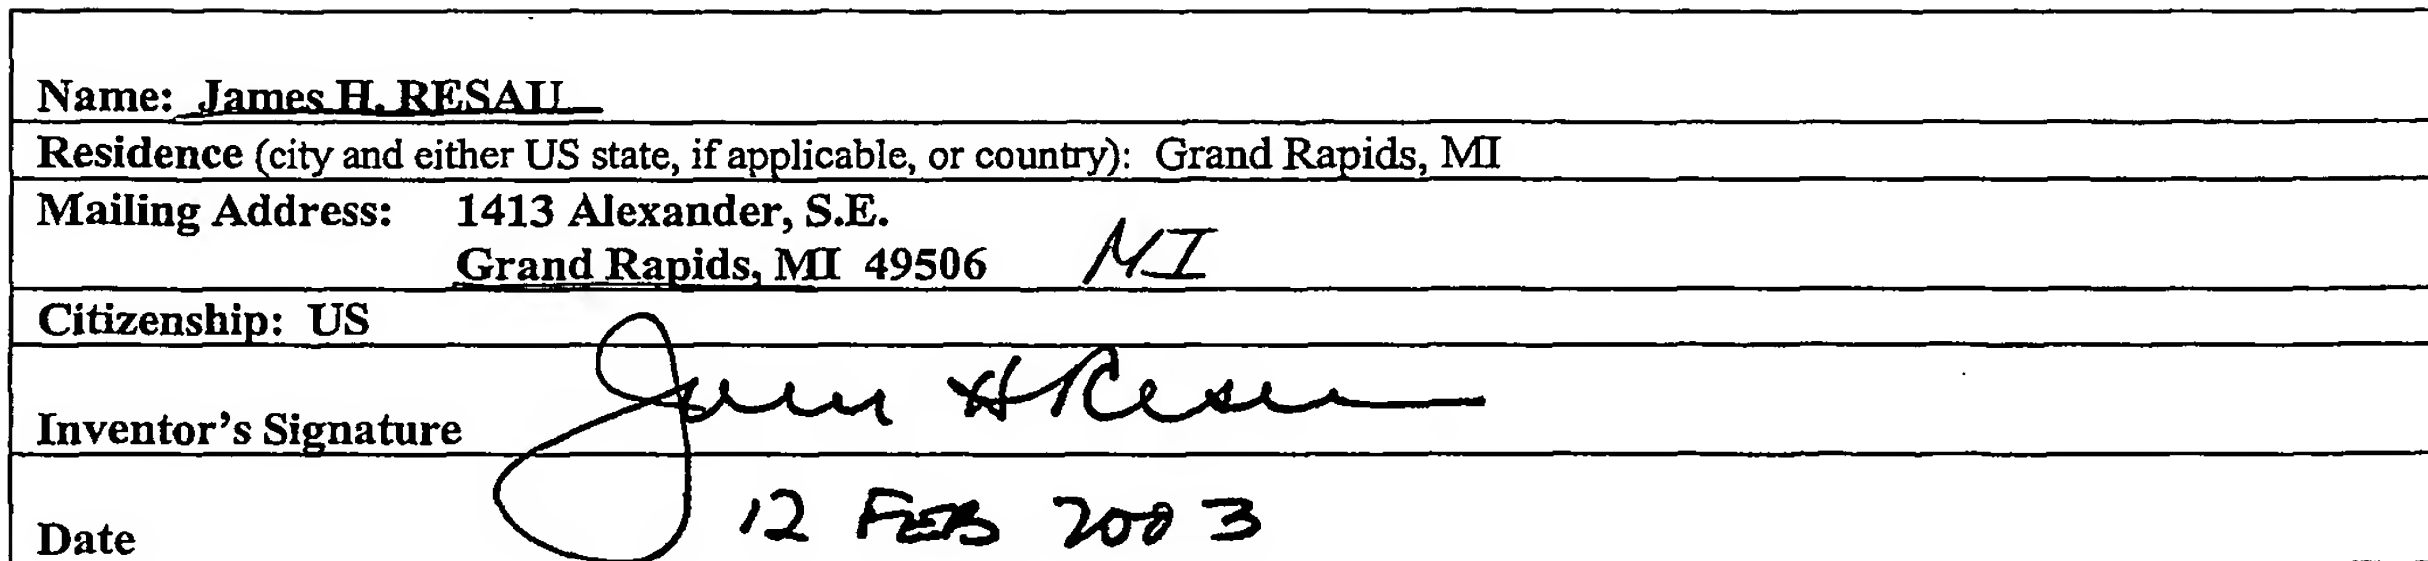 Name: James H. RESAU
Residence (city and either US state, if applicable, or country): Grand Rapids, MI
Mailing Address: 1413 Alexander, S.E.
Grand Rapids, MI 49506 MI
Citizenship: US
Inventor's Signature James H Resau
Date 12 FEB 2003